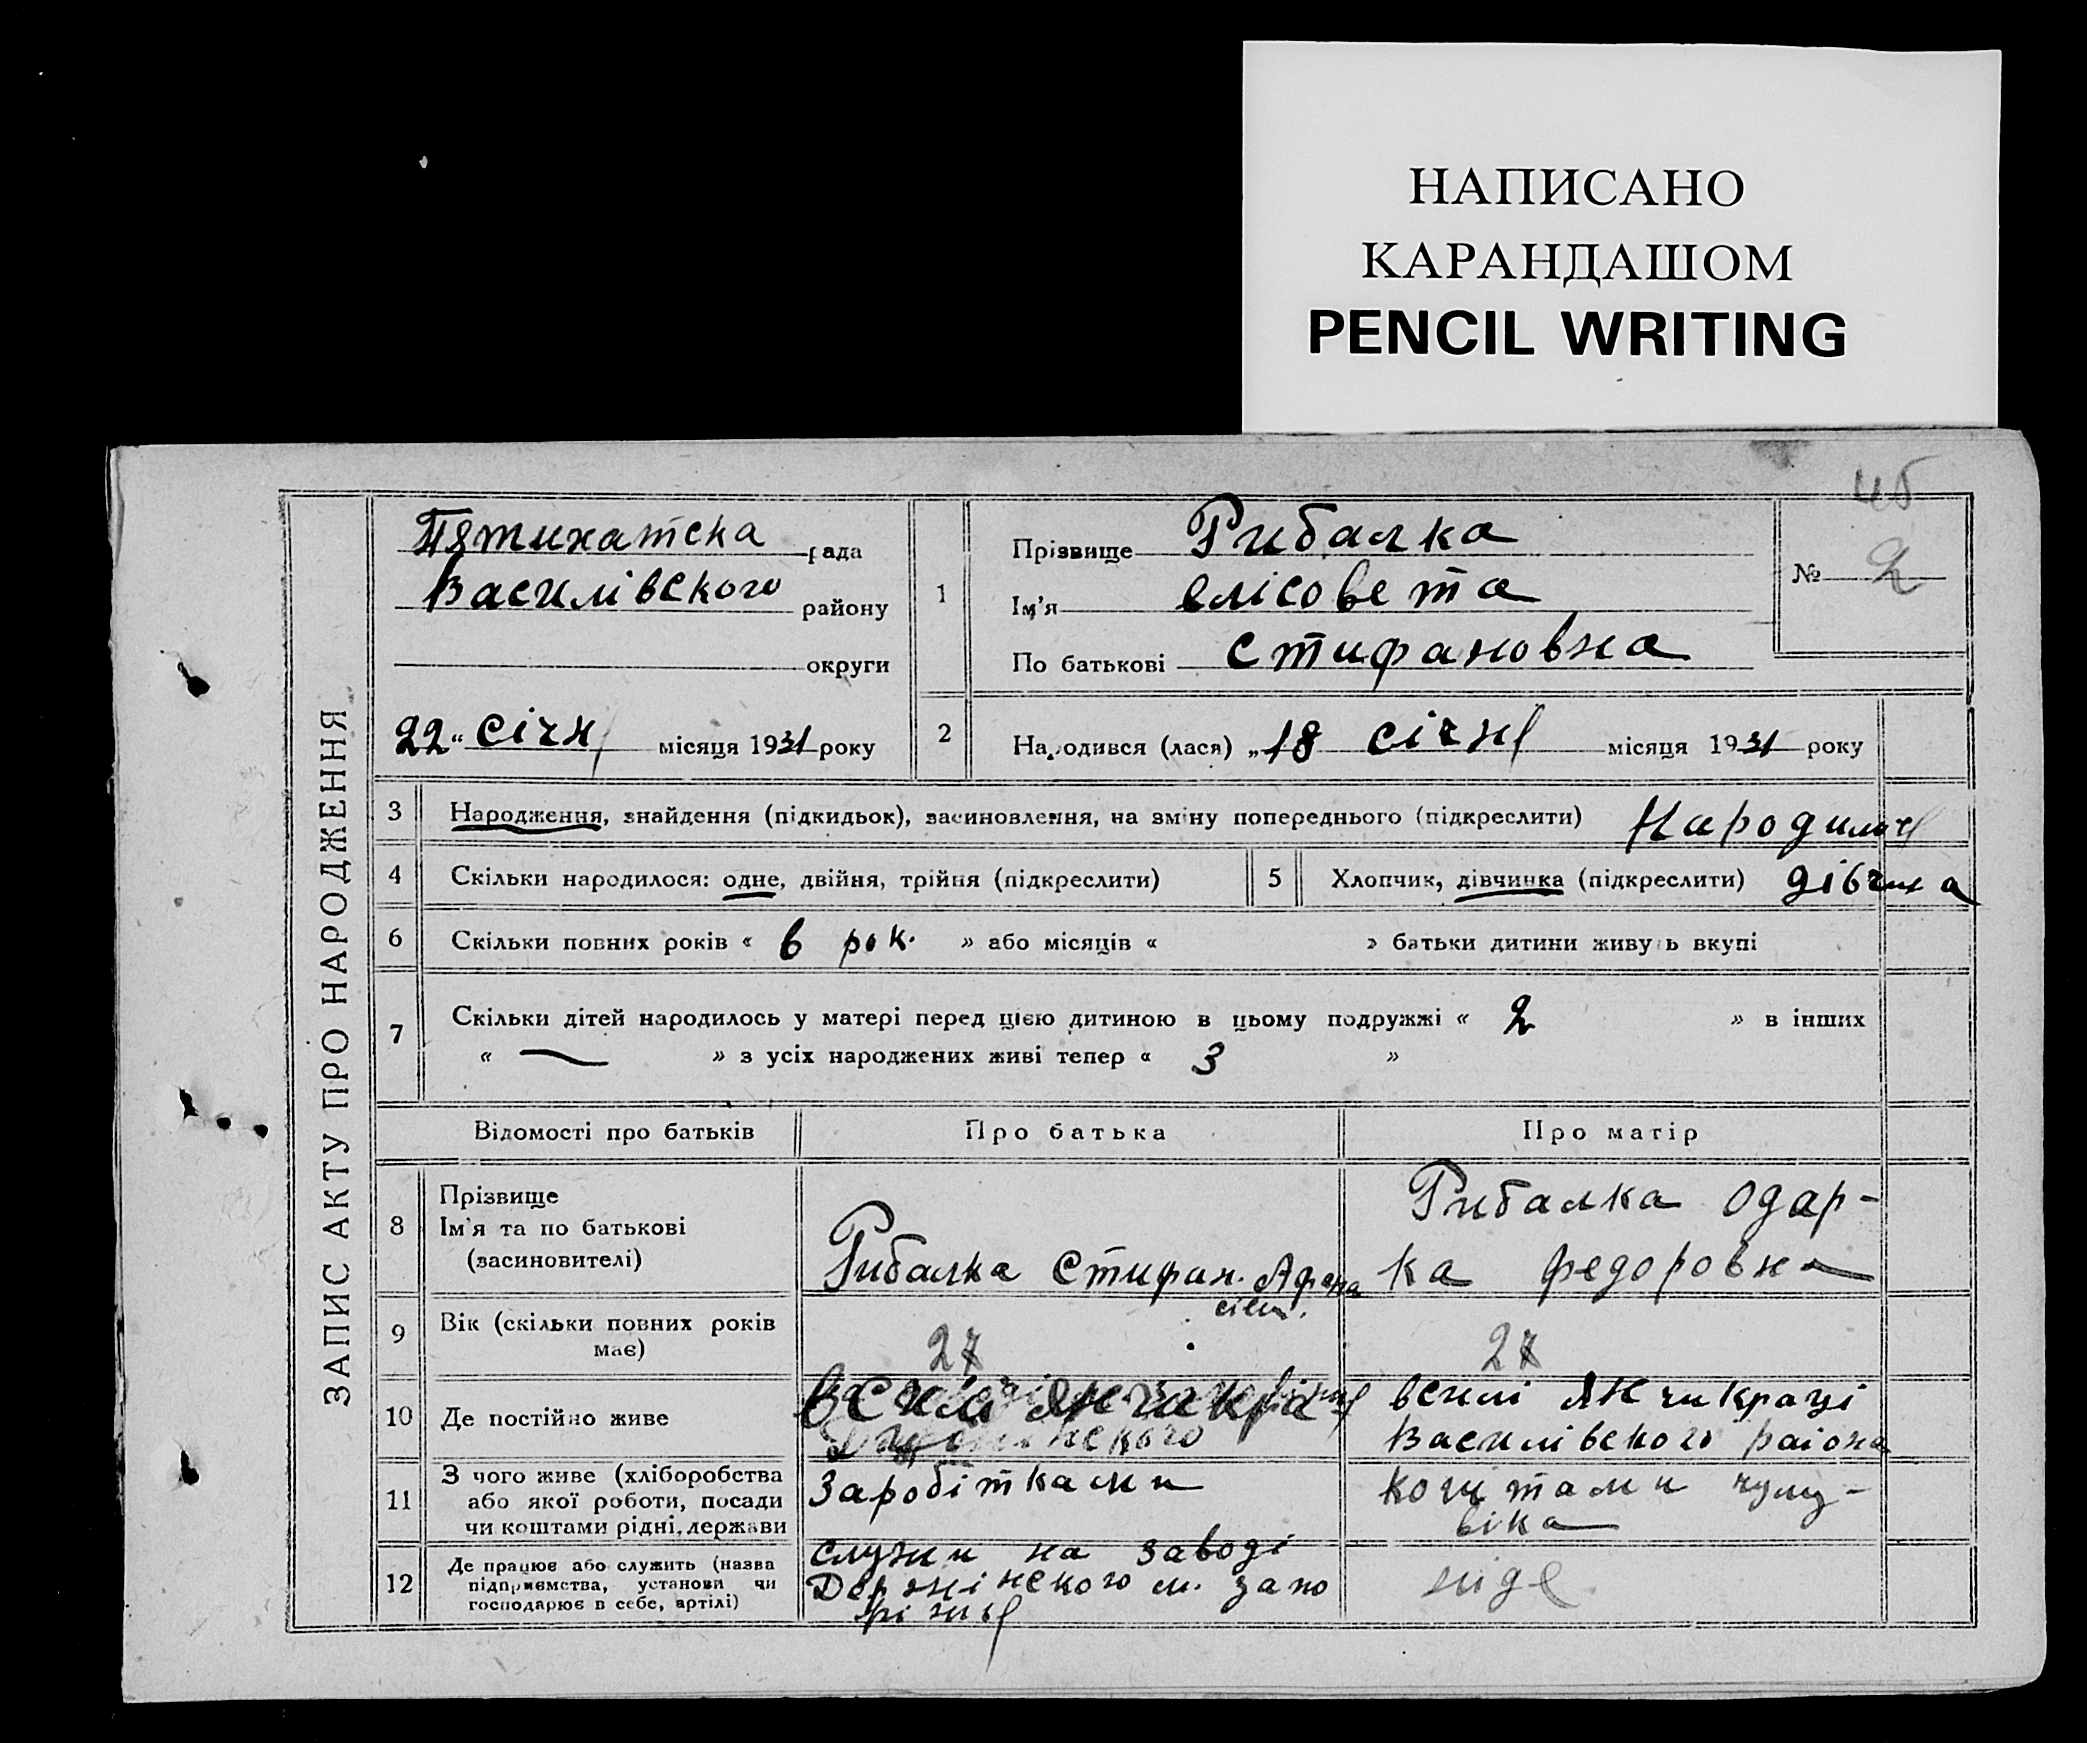 НАПИСАНО
КАРАНДАШОМ
PENCIL WRITING
ЗАПИС АКТУ ПРО НАРОДЖЕННЯ
Пятихатска рада
Василівского району
округи
22 “ січня місяця 1931 року
1
Прізвище Рибалка
Ім’я Єлісовета
По батькові Стифановна
№ 2
2
Народився (лася) „ 18 січня місяця 1931 року
3 Народження, знайдення (підкидьок), засиновлення, на зміну попереднього (підкреслити) Народилася
4 Скільки народилося: одне, двійня, трійня (підкреслити)
5 Хлопчик, дівчинка (підкреслити) дівчина
6 Скільки повних років « 6 рок. » або місяців « » батьки дитини живуть вкупі
7 Скільки дітей народилось у матері перед цією дитиною в цьому подружжі « 2 » в інших
« — » з усіх народжених живі тепер « 3 »
Відомості про батьків
Про батька
Про матір
8 Прізвище
Ім’я та по батькові
(засиновителі)
Рибалка Стифан. Афана
сієв.
Рибалка Одар-
ка Федоровна
9 Вік (скільки повних років
має)
27
27
10 Де постійно живе
вселі Янчикраці
Василівского района
11 З чого живе (хліборобства
або якої роботи, посади
чи коштами рідні, держави
Заробітками
коштами чулу-
віка
12 Де працює або служить (назва
підприємства, установи чи
господарює в себе, артілі)
служи на заводі
Держінского м. Запо
ріжжя
ніде